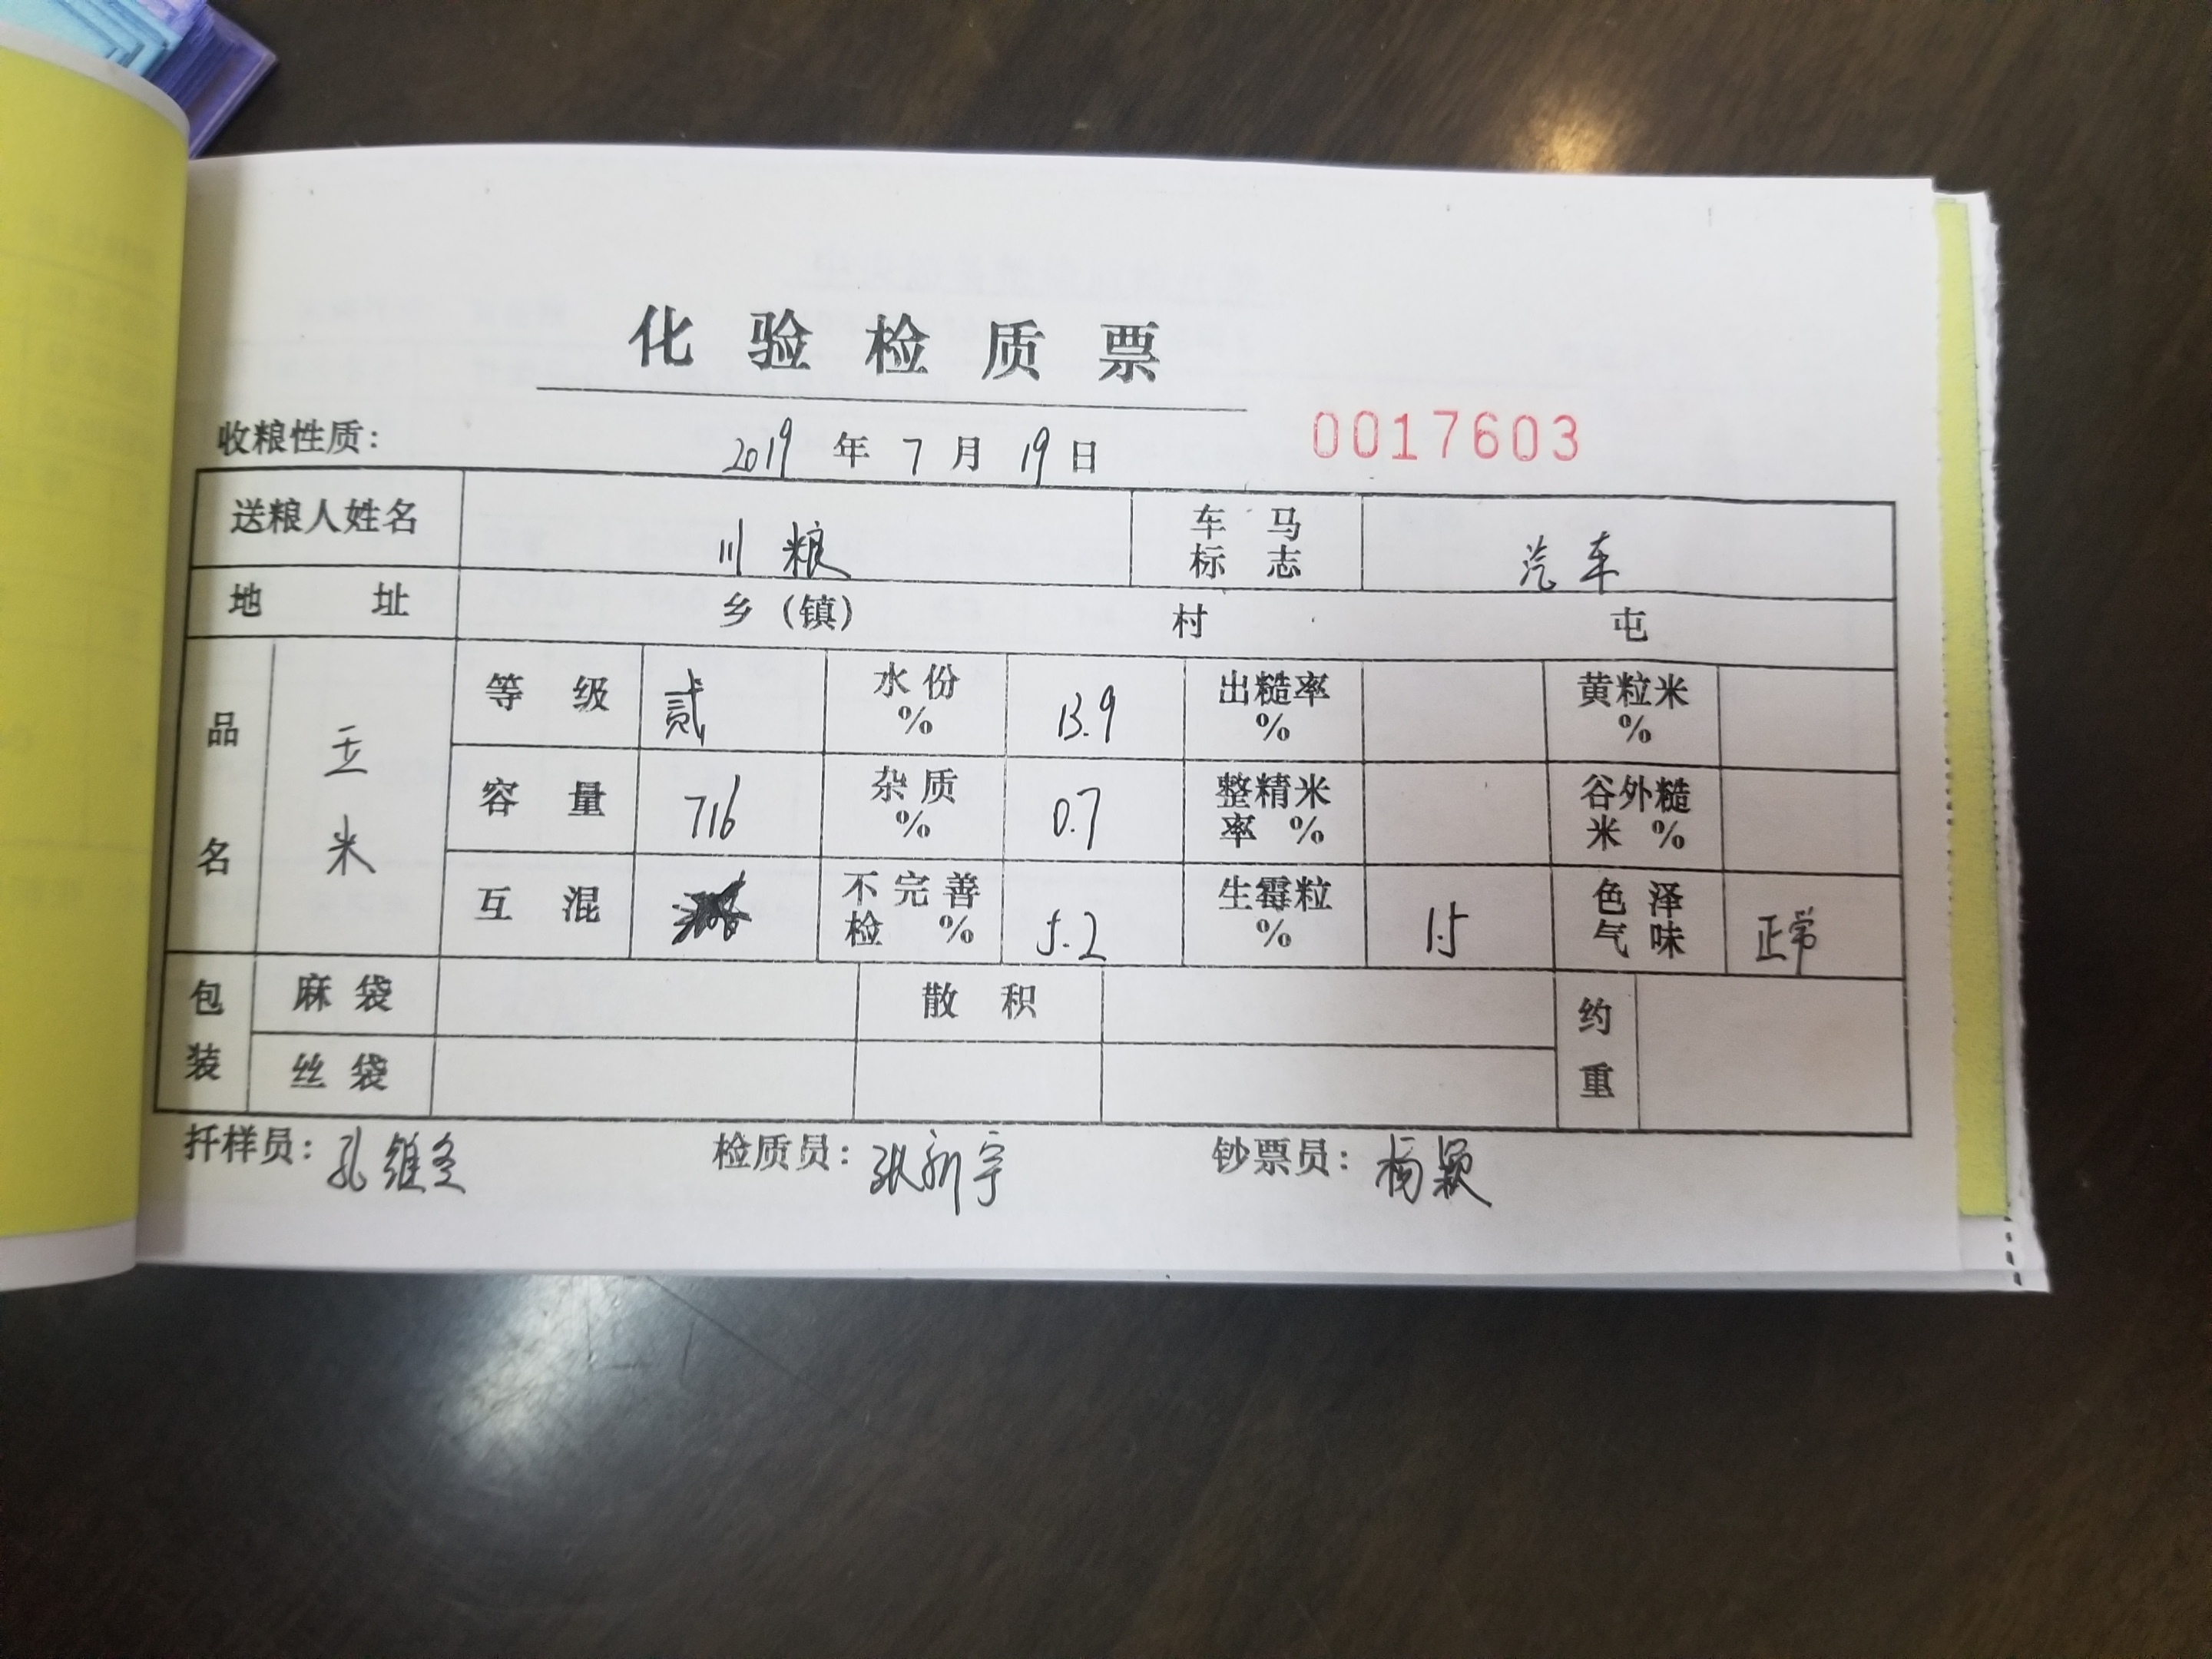 化验检质票
收粮性质： 2019年7月19日 0017603
送粮人姓名 川粮 车马标志 汽车
地址 乡（镇） 村 屯
品名 玉米 等级 贰 水份% 13.9 出糙率% 黄粒米%
容量 716 杂质% 0.7 整精米率% 谷外糙米%
互混 不完善检% 5.2 生霉粒% 1.5 色泽气味 正常
包装 麻袋 散积 约重
丝袋
扦样员：孔维 检质员：张新宇 钞票员：杨颖